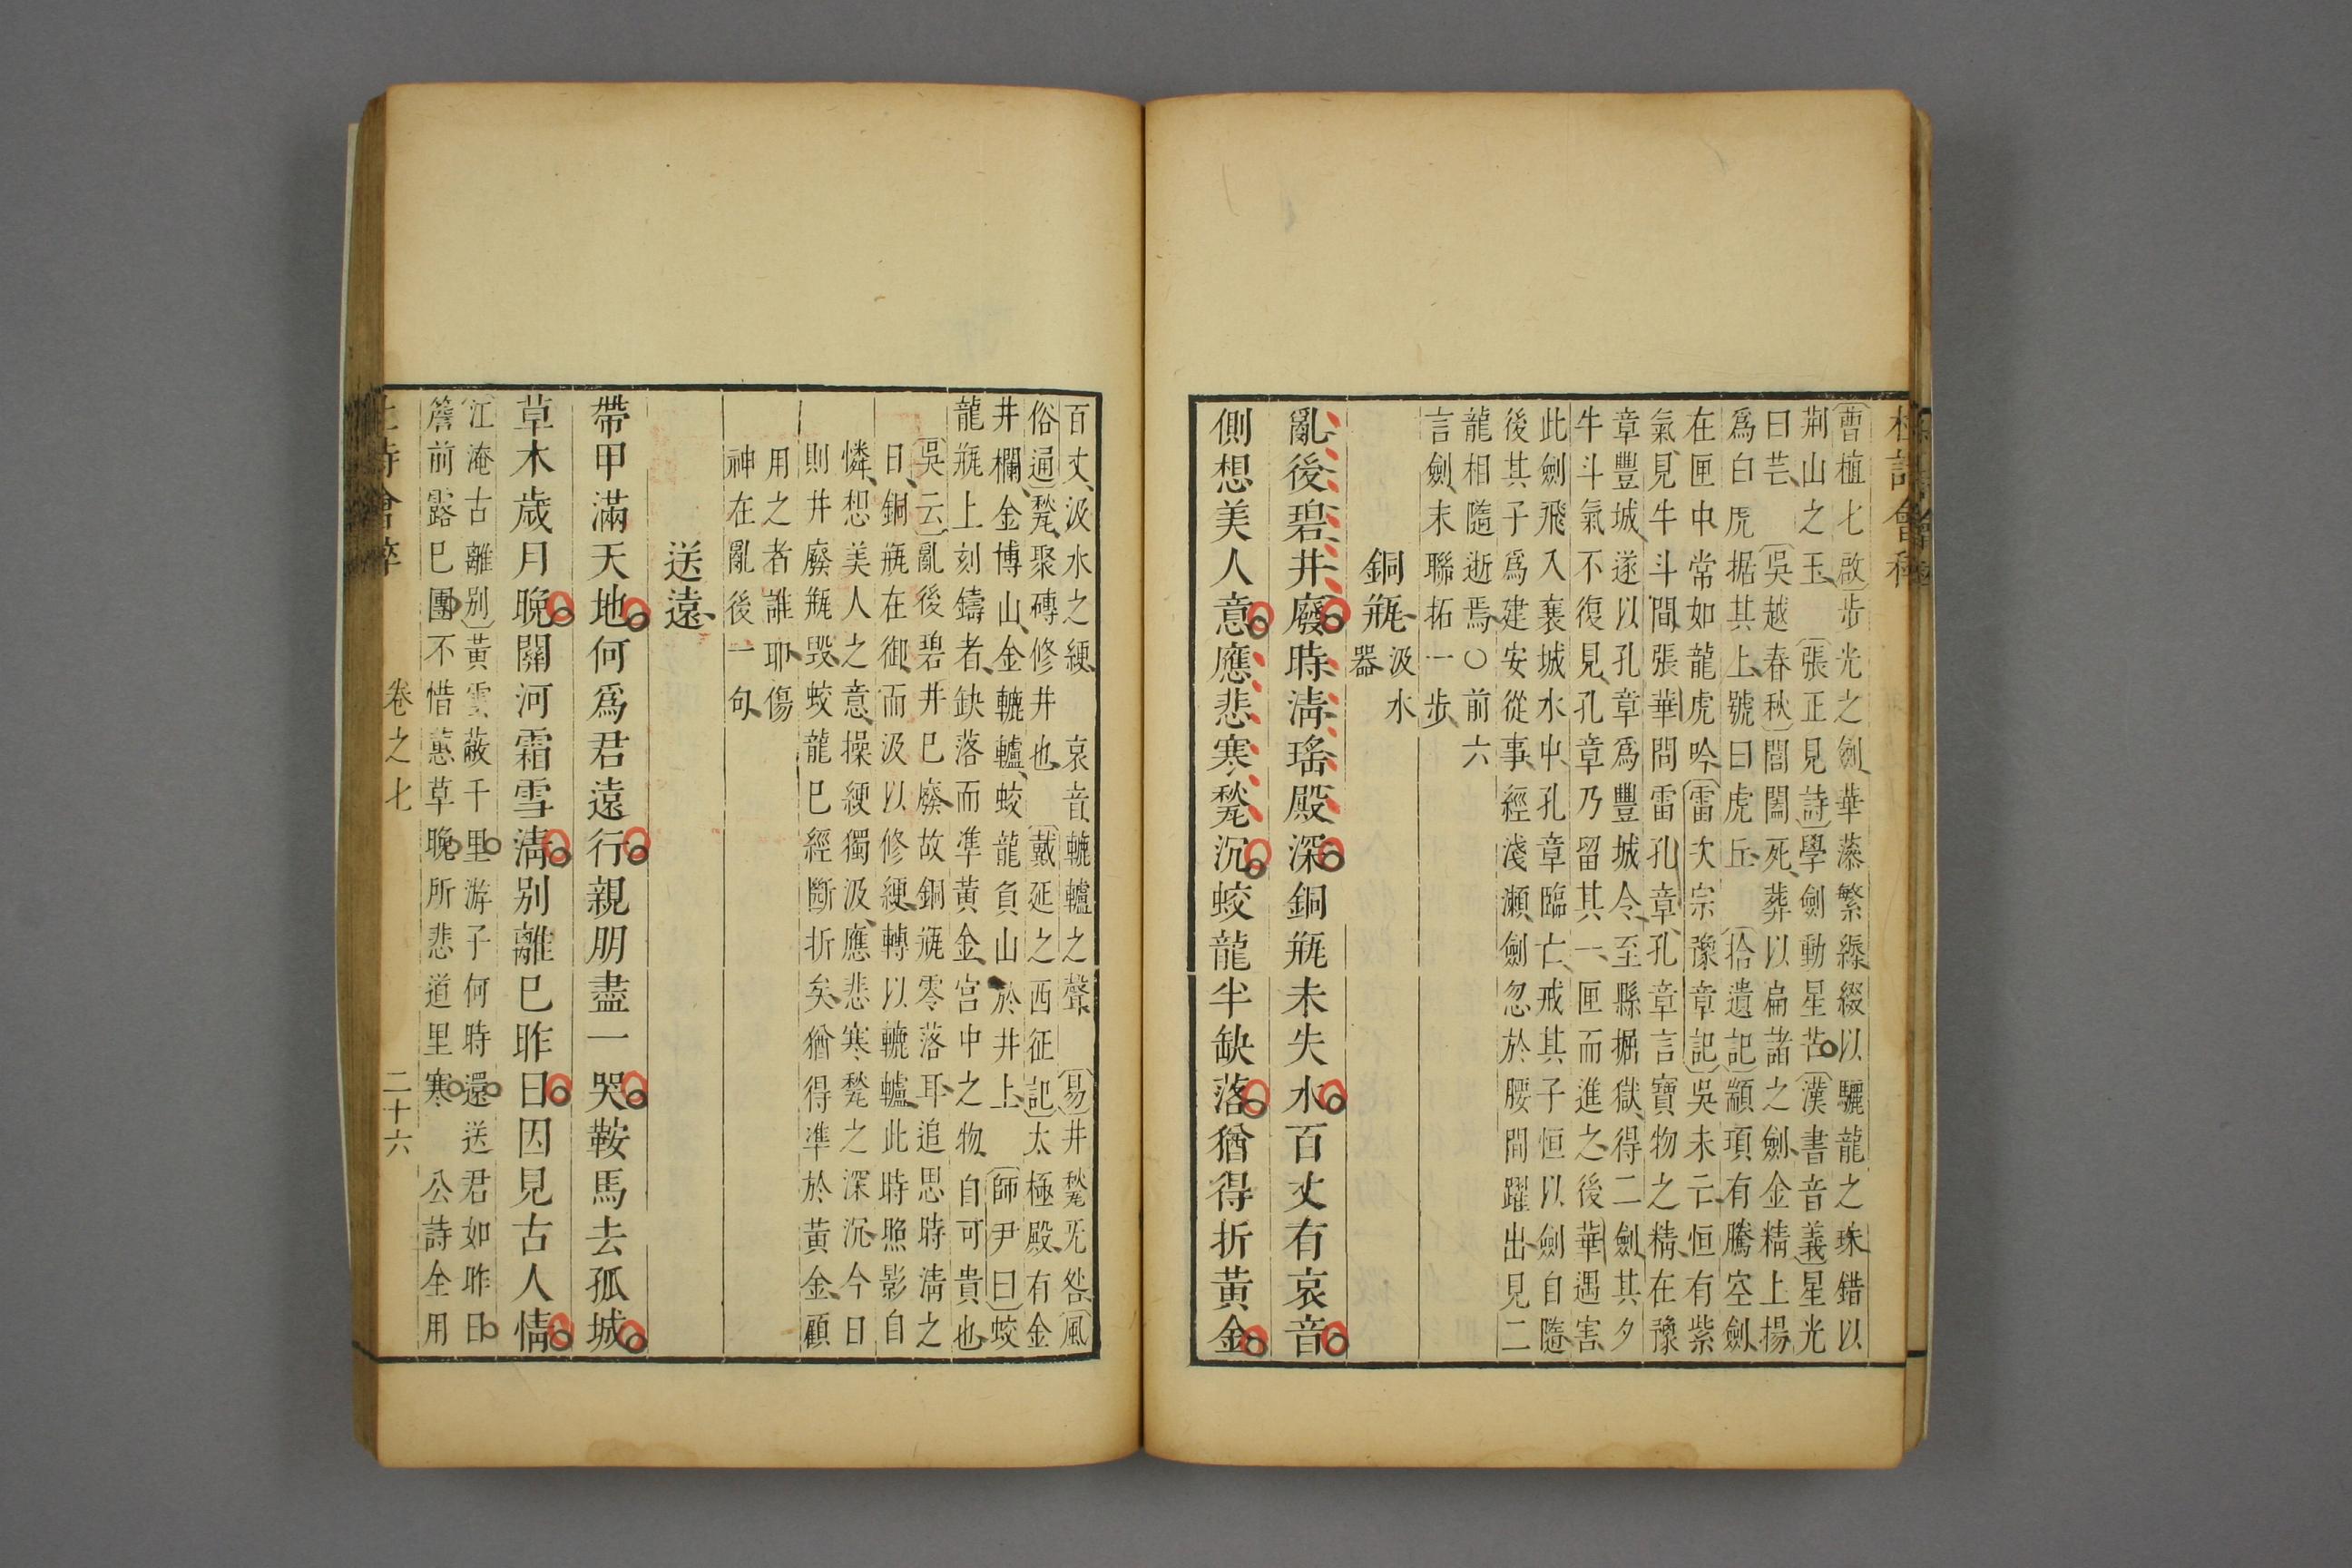 杜詩會稡
〔曹植七啟〕步光之劍、華藻繁縟、綴以驪龍之珠、錯以
荆山之玉、〔張正見詩〕學劍動星芒〔漢書音義〕星光
曰芒、〔吳越春秋〕闔閭死、葬以扁諸之劍、金精上揚
爲白虎据其上、號曰虎丘、〔拾遺記〕顓頊有騰空劍、
在匣中常如龍虎吟〔雷次宗豫章記〕吳未亡恒有紫
氣、見牛斗間、張華問雷孔章、孔章言寶物之精、在豫
章豐城、遂以孔章爲豐城令、至縣掘獄、得二劍、其夕
牛斗氣不復見、孔章乃留其一、匣而進之、後華遇害、
此劍飛入襄城水中、孔章臨亡、戒其子恒以劍自隨、
後其子爲建安從事、經淺瀨、劍忽於腰間躍出、見二
龍相隨逝焉、○前六
言劍、末聯拓一步、
銅瓶、汲水器
亂後碧井廢時淸瑤殿深銅瓶未失水百丈有哀音
側想美人意應悲寒甃沉蛟龍半缺落猶得折黃金
百丈、汲水之綆、哀音、轆轤之聲、〔易〕井甃旡咎〔風
俗通〕甃、聚磚修井也、〔戴延之西征記〕太極殿、有金
井欄、金博山、金轆轤、蛟龍負山、於井上、〔師尹曰〕蛟
龍瓶上刻鑄者、缺落而準黃金、宮中之物、自可貴也、
〔吳云〕亂後碧井已廢、故銅瓶零落耳、追思時淸之
日、銅瓶在御、而汲以修綆、轉以轆轤、此時照影自
憐、想美人之意、操綆獨汲、應悲寒甃之深沉、今日
則井廢瓶毀、蛟龍已經斷折矣、猶得準於黃金、顧
用之者誰耶、傷
神在亂後一句、
送遠、
帶甲滿天地何爲君遠行親朋盡一哭鞍馬去孤城
草木歲月晚關河霜雪淸別離已昨日因見古人情
〔江淹古離別〕黃雲蔽千里游子何時還送君如昨日
簷前露已團不惜蕙草晚所悲道里寒 公詩全用
卷之七
二十六